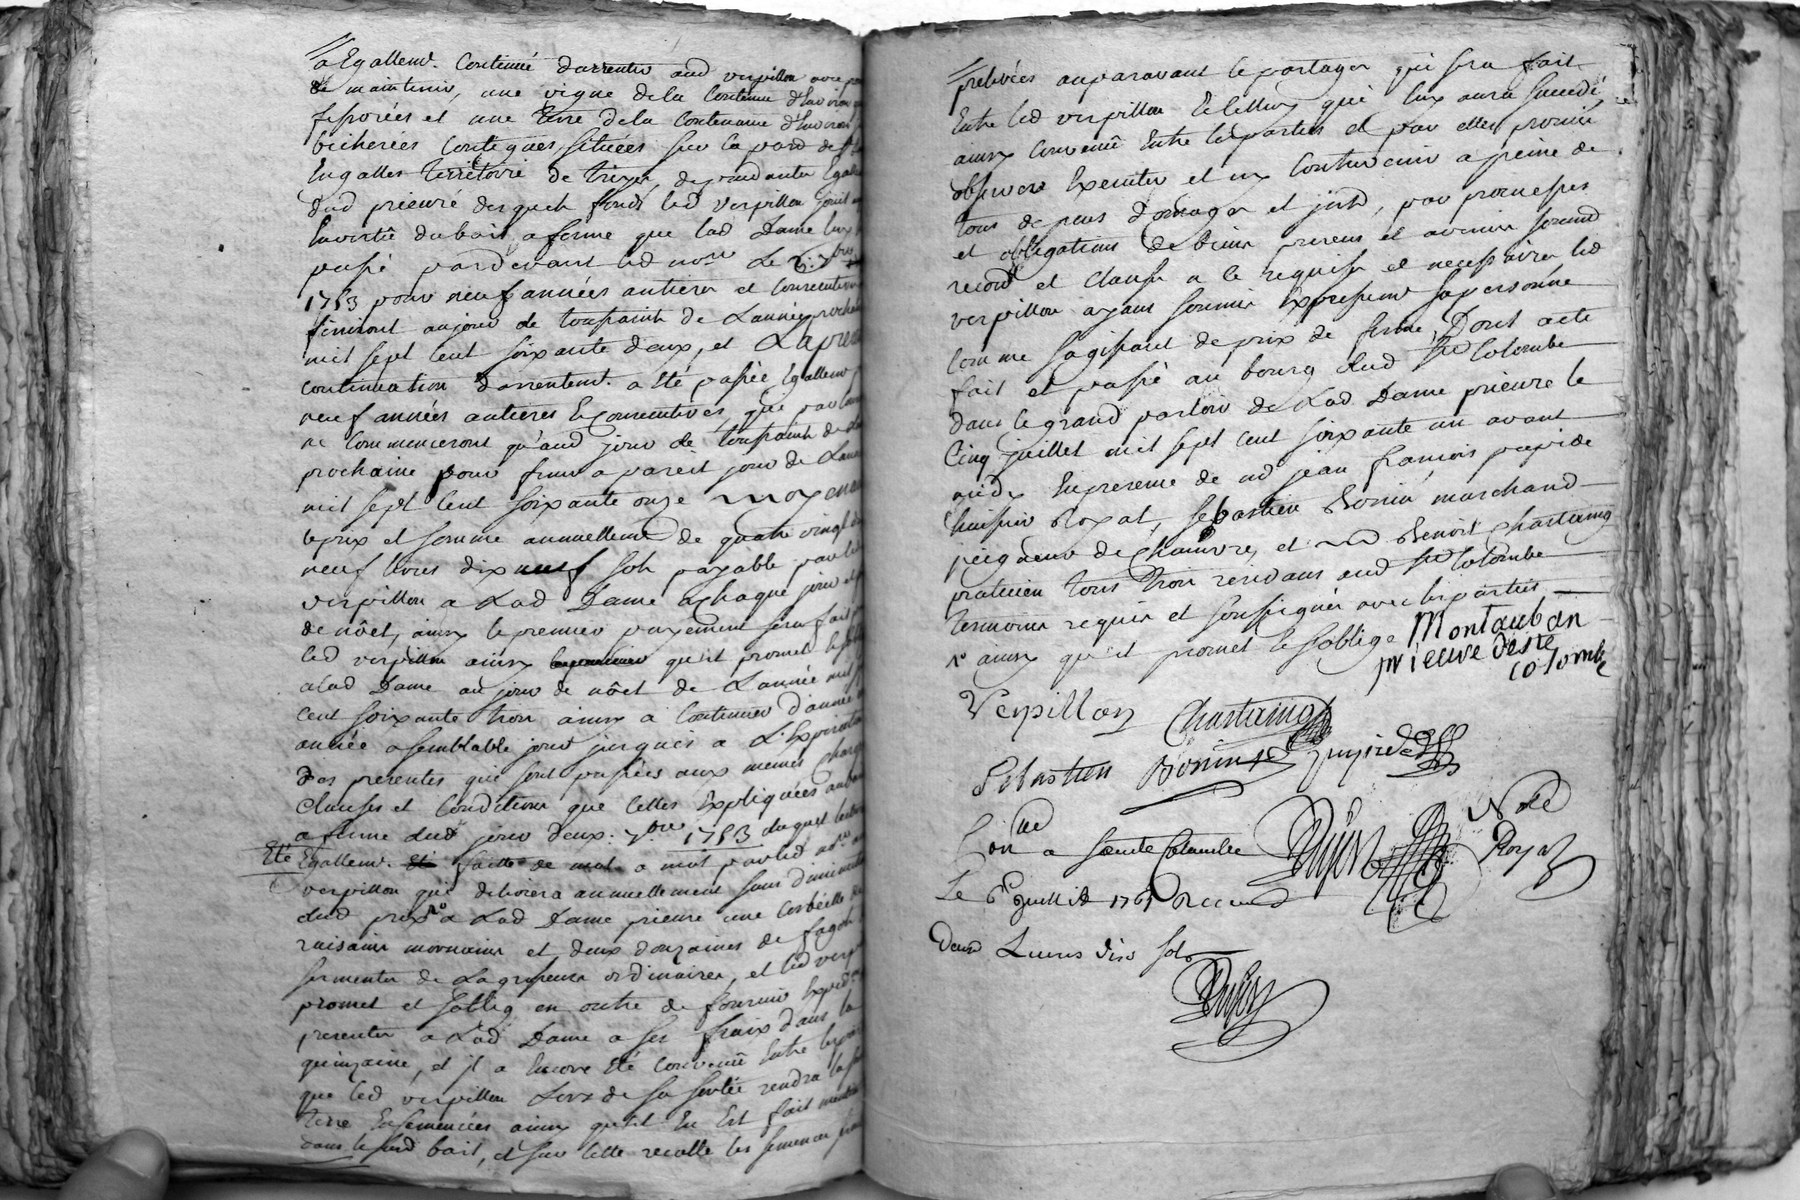 a Egallemt. Continué darrenter aud verpillon avec
de maintenir, une vigne de la Contenue d'Environ
fessorées et une terre dela Contenance d'Environ
bicherées Contigues, scituées sur la parr de St
Engalles territoire de trives dependantes Egalle
dud prieuré desquels fonds led verpillon jouit
En vertu du bail a ferme que lad Dame luy
passé pardevant led nore Le 2: 7bre
1753 pour neuf années entieres et Consecutives
finiront au jour de toussaint de L'année prochaine
mil sept cent soixante deux, et La presente
continuation darrentemt. a Eté passée Egallemt p
neuf années entieres Et Consecutives, que
ne Commenceront qu'aud jour de toussaint de
prochaine pour finir a pareil jour de L'année
mil sept Cent soixante onze moyenant
le prix et somme annuellemt de quatre vingt dix
neuf livres dix neuf sols payable par led
verpillon a Lad Dame a chaque jour et
de nôel, ainsy le premier payement sera fait
led verpillon ainsy qu'il promet
a lad Dame au jour de nôel de L'année mil
Cent soixante trois ainsy a Continuer d'année
année a semblable jour jusques a L'Expiration
Des presentes qui sont passées aux memes Charges
Clauses et Conditions que Celles Expliquées aud bail
a ferme dud jour deux: 7bre 1753 duquel lecture
Eté Egallemt. faitte de mot a mot par led nore
verpillon qui delivrera annuellement sans diminution
dud prix a Lad Dame prieure une Corbeille de
raisains mornains et deux douzaines de fagots
sermentes de La grosseur ordinaires, et led verpillon
promet et soblig en outre de fournir Exped.
presentes a Lad Dame a ses fraix dans la
quinzaine, et jl a Encore Eté Convenû Entre les parties
que led verpillon Lors de sa sortie rendra la
terre Ensemencées ainsy qu'il En Est fait mention
dans le susd bail, et sur Cette recolte les semences
prelevées auparavant le partage qui sera fait
Entre led verpillon Et Celluy qui luy aura succedé
ainsy Convenû Entre les parties et par elles promis
observer Executer et ny Contrevenir a peine de
tous depens Domages et jnts, par promesses
et obligations de biens presens et avenir soumis
renonc et Clause a ce requise et necessaires led
verpillon ayant soumis Expressemt sa personne
Comme sagissant de prix de ferme, Dont acte
fait et passé au bourg dud Ste Colombe
dans le grand parloir de Lad Dame prieure le
Cinq juillet mil sept cent soixante un avant
midy En presence de sd jean françois papire
huissier Royal, sebastien Bonin marchand
peigneur de Chamvre, et sd Benoit Chastaing
praticien tous trois residans aud Ste Colombe
temoins requis et soussignés avec les parties
ainsy qu'il promet Et soblige Montauban
prieure de Ste
colombe
Verpillon Chastaing
Sebastien Bonin
Nore
Royal
Conlle a Sainte Colombe Dujon
Le 6e Juillet 1761 Receu
Deux Livres dix sols
Dujon